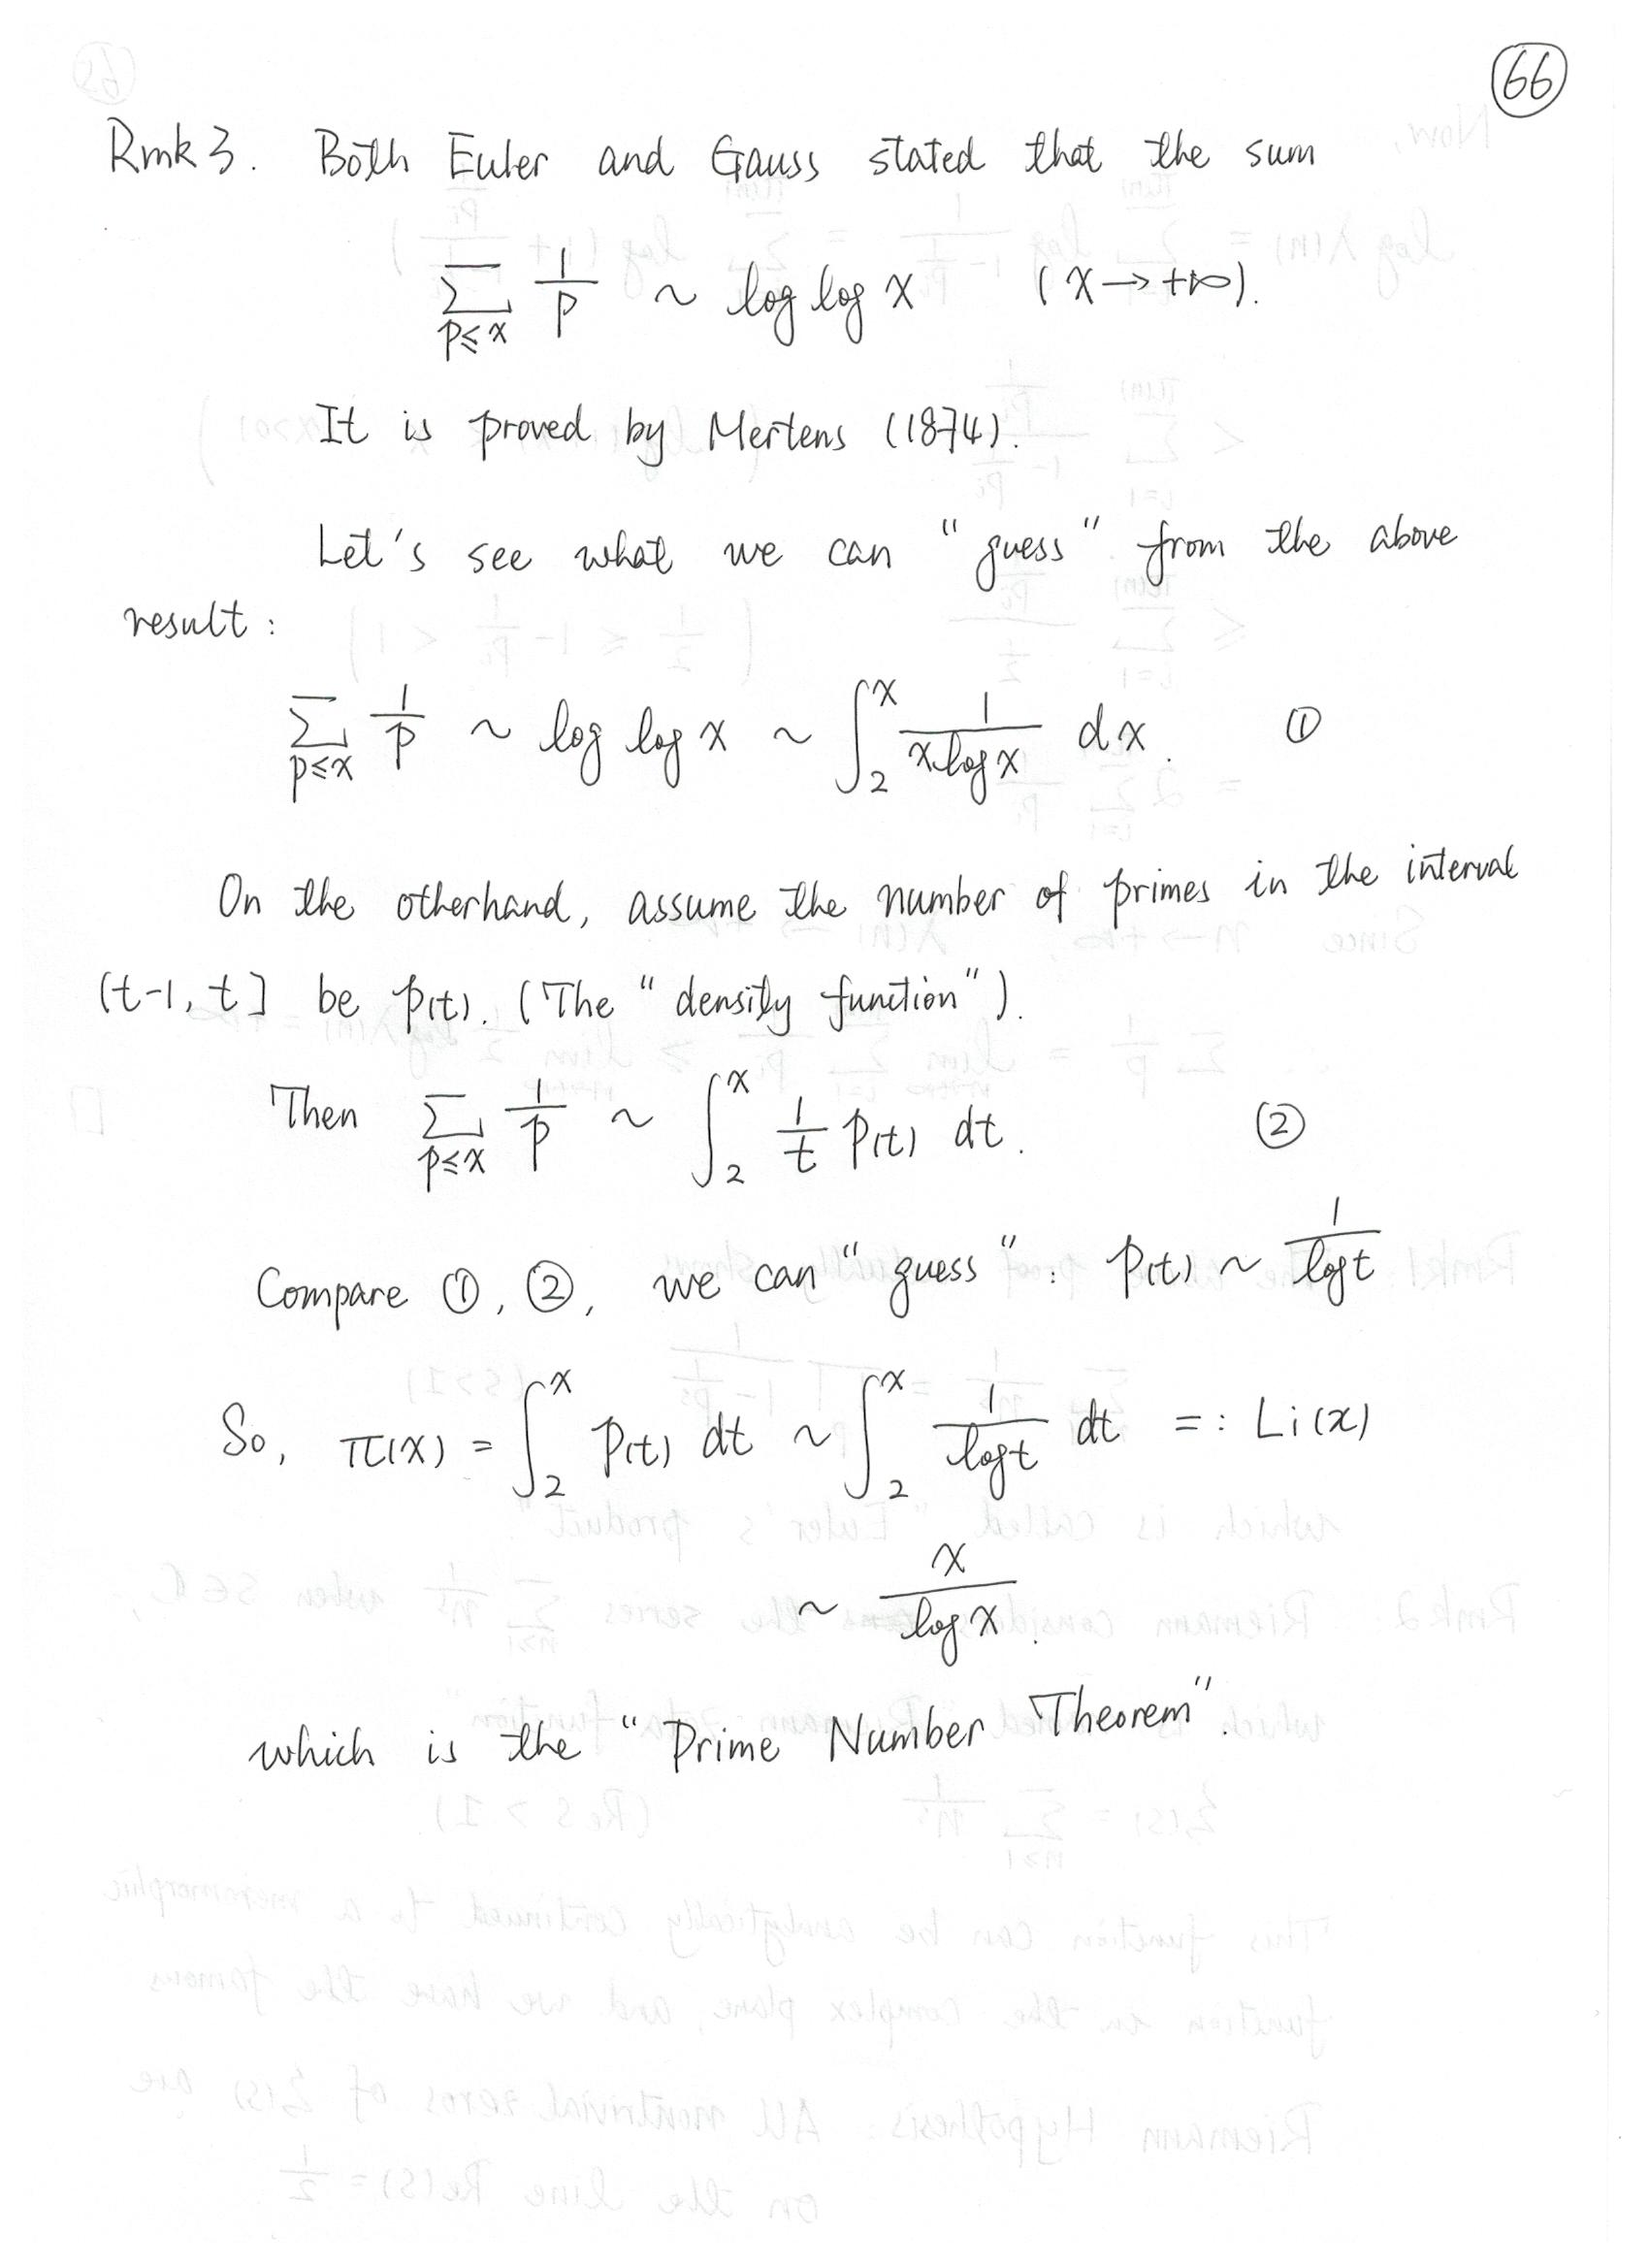 66
Rmk 3. Both Euler and Gauss stated that the sum
∑_{p≤x} 1/p ~ log log x (x→+∞).
It is proved by Mertens (1874).
Let's see what we can "guess" from the above
result:
∑_{p≤x} 1/p ~ log log x ~ ∫_2^x 1/(x log x) dx. ①
On the otherhand, assume the number of primes in the interval
(t-1, t] be p(t). (The "density function").
Then ∑_{p≤x} 1/p ~ ∫_2^x 1/t p(t) dt. ②
Compare ①, ②, we can "guess": p(t) ~ 1/log t
So, π(x) = ∫_2^x p(t) dt ~ ∫_2^x 1/log t dt =: Li(x)
~ x/log x.
which is the "Prime Number Theorem".